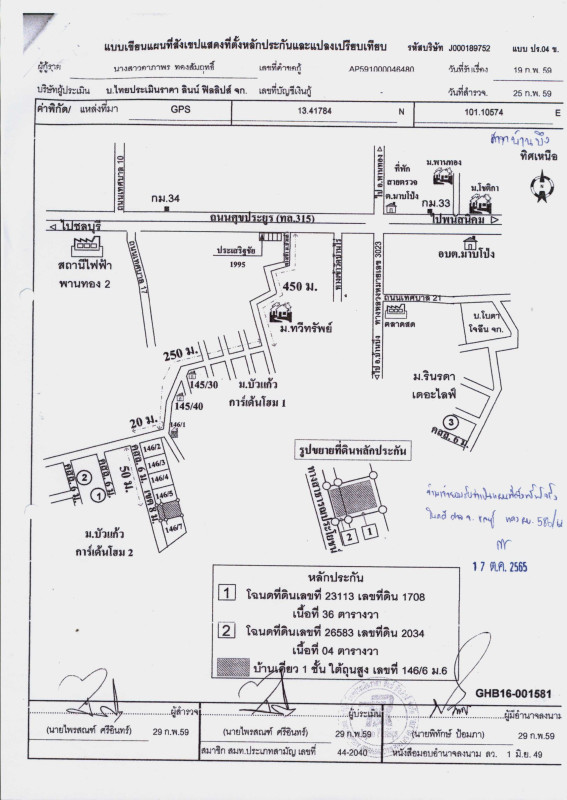 แบบเขียนแผนที่สังเขปแสดงที่ตั้งหลักประกันและแปลงเปรียบเทียบ รหัสบริษัท J000189752 แบบ ปร.04 ข.
ผู้กู้ราย นางสาวดาภาพร ทองสัมฤทธิ์ เลขที่คำขอกู้ AP591000046480 วันที่รับเรื่อง 19 ก.พ. 59
บริษัทผู้ประเมิน บ.ไทยประเมินราคา ลินน์ ฟิลลิปส์ จก. เลขที่บัญชีเงินกู้ วันที่สำรวจ. 25 ก.พ. 59
ค่าพิกัด/ แหล่งที่มา GPS 13.41784 N 101.10574 E
ทิศเหนือ
ถนนเทศบาล 10
กม.34
ไป อ.พานทอง
ที่พัก
สายตรวจ
ต.มาบโป่ง
ม.พานทอง
กม.33
ม.โชติกา
ถนนศุขประยูร (ทล.315)
ไปชลบุรี
ไปพนัสนิคม
สถานีไฟฟ้า
พานทอง 2
ถนนเทศบาล 17
ประเสริฐชัย
1995
450 ม.
ทางหลวงหมายเลข 3023
อบต.มาบโป่ง
ถนนเทศบาล 21
ตลาดสด
ม.ทวีทรัพย์
ไป อ.บ้านบึง
บ.โบดา
โจอีน จก.
250 ม.
145/30
145/40
ม.บัวแก้ว
การ์เด้นโฮม 1
ม.รินรดา
เดอะไลฟ์
3
คสล. 6 ม.
20 ม.
146/1
146/2
146/3
146/4
146/5
146/7
คสล. 6 ม.
2
1
คสล. 6 ม.
50 ม.
คสล. 6 ม.
เขต 8 ม.
ม.บัวแก้ว
การ์เด้นโฮม 2
รูปขยายที่ดินหลักประกัน
ทางสาธารณประโยชน์
2
1
17 ต.ค. 2565
หลักประกัน
1 โฉนดที่ดินเลขที่ 23113 เลขที่ดิน 1708
เนื้อที่ 36 ตารางวา
2 โฉนดที่ดินเลขที่ 26583 เลขที่ดิน 2034
เนื้อที่ 04 ตารางวา
บ้านเดี่ยว 1 ชั้น ใต้ถุนสูง เลขที่ 146/6 ม.6
GHB16-001581
ผู้สำรวจ ผู้ประเมิน ผู้มีอำนาจลงนาม
(นายไพรสณฑ์ ศรีอินทร์) 29 ก.พ.59 (นายไพรสณฑ์ ศรีอินทร์) 29 ก.พ.59 (นายพิทักษ์ ป้อมภา) 29 ก.พ.59
สมาชิก สมท.ประเภทสามัญ เลขที่ 44-2040 หนังสือมอบอำนาจลงนาม ลว. 1 มิ.ย. 49